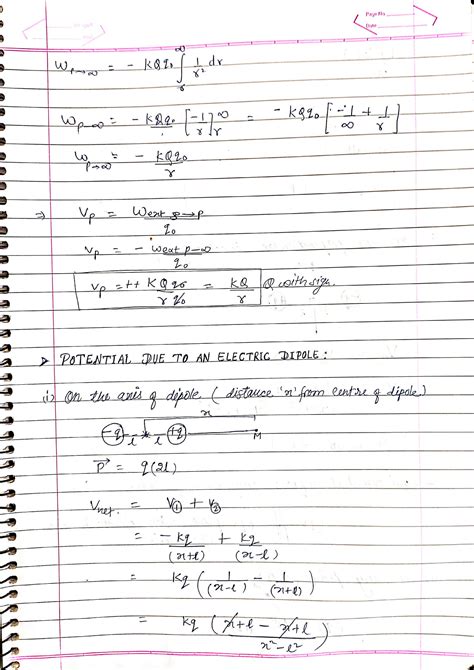 Page No.
Date
W_{P→∞} = - KQq₀ ∫_r^∞ 1/r² dr
W_{P→∞} = - KQq₀ [-1/r]_r^∞ = - KQq₀ [-1/∞ + 1/r]
W_{P→∞} = - KQq₀/r
⇒ V_P = W_{ext ∞→P}/q₀
V_P = - W_{ext P→∞}/q₀
V_P = ++ KQq₀/r q₀ = KQ/r Q with sign.
➤ POTENTIAL DUE TO AN ELECTRIC DIPOLE :
(i) On the axis of dipole ( distance 'x' from centre of dipole)
x
-q l l +q M
P⃗ = q(2l)
V_net. = V① + V②
= -Kq/(x+l) + Kq/(x-l)
= Kq ( 1/(x-l) - 1/(x+l) )
= Kq ( x+l - x+l / x²-l² )